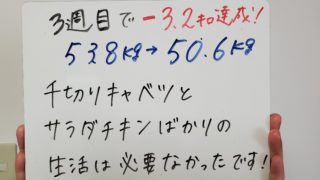 3週目で－3.2キロ達成！
53.8kg→50.6kg
千切りキャベツと
サラダチキンばかりの
生活は必要なかったです！